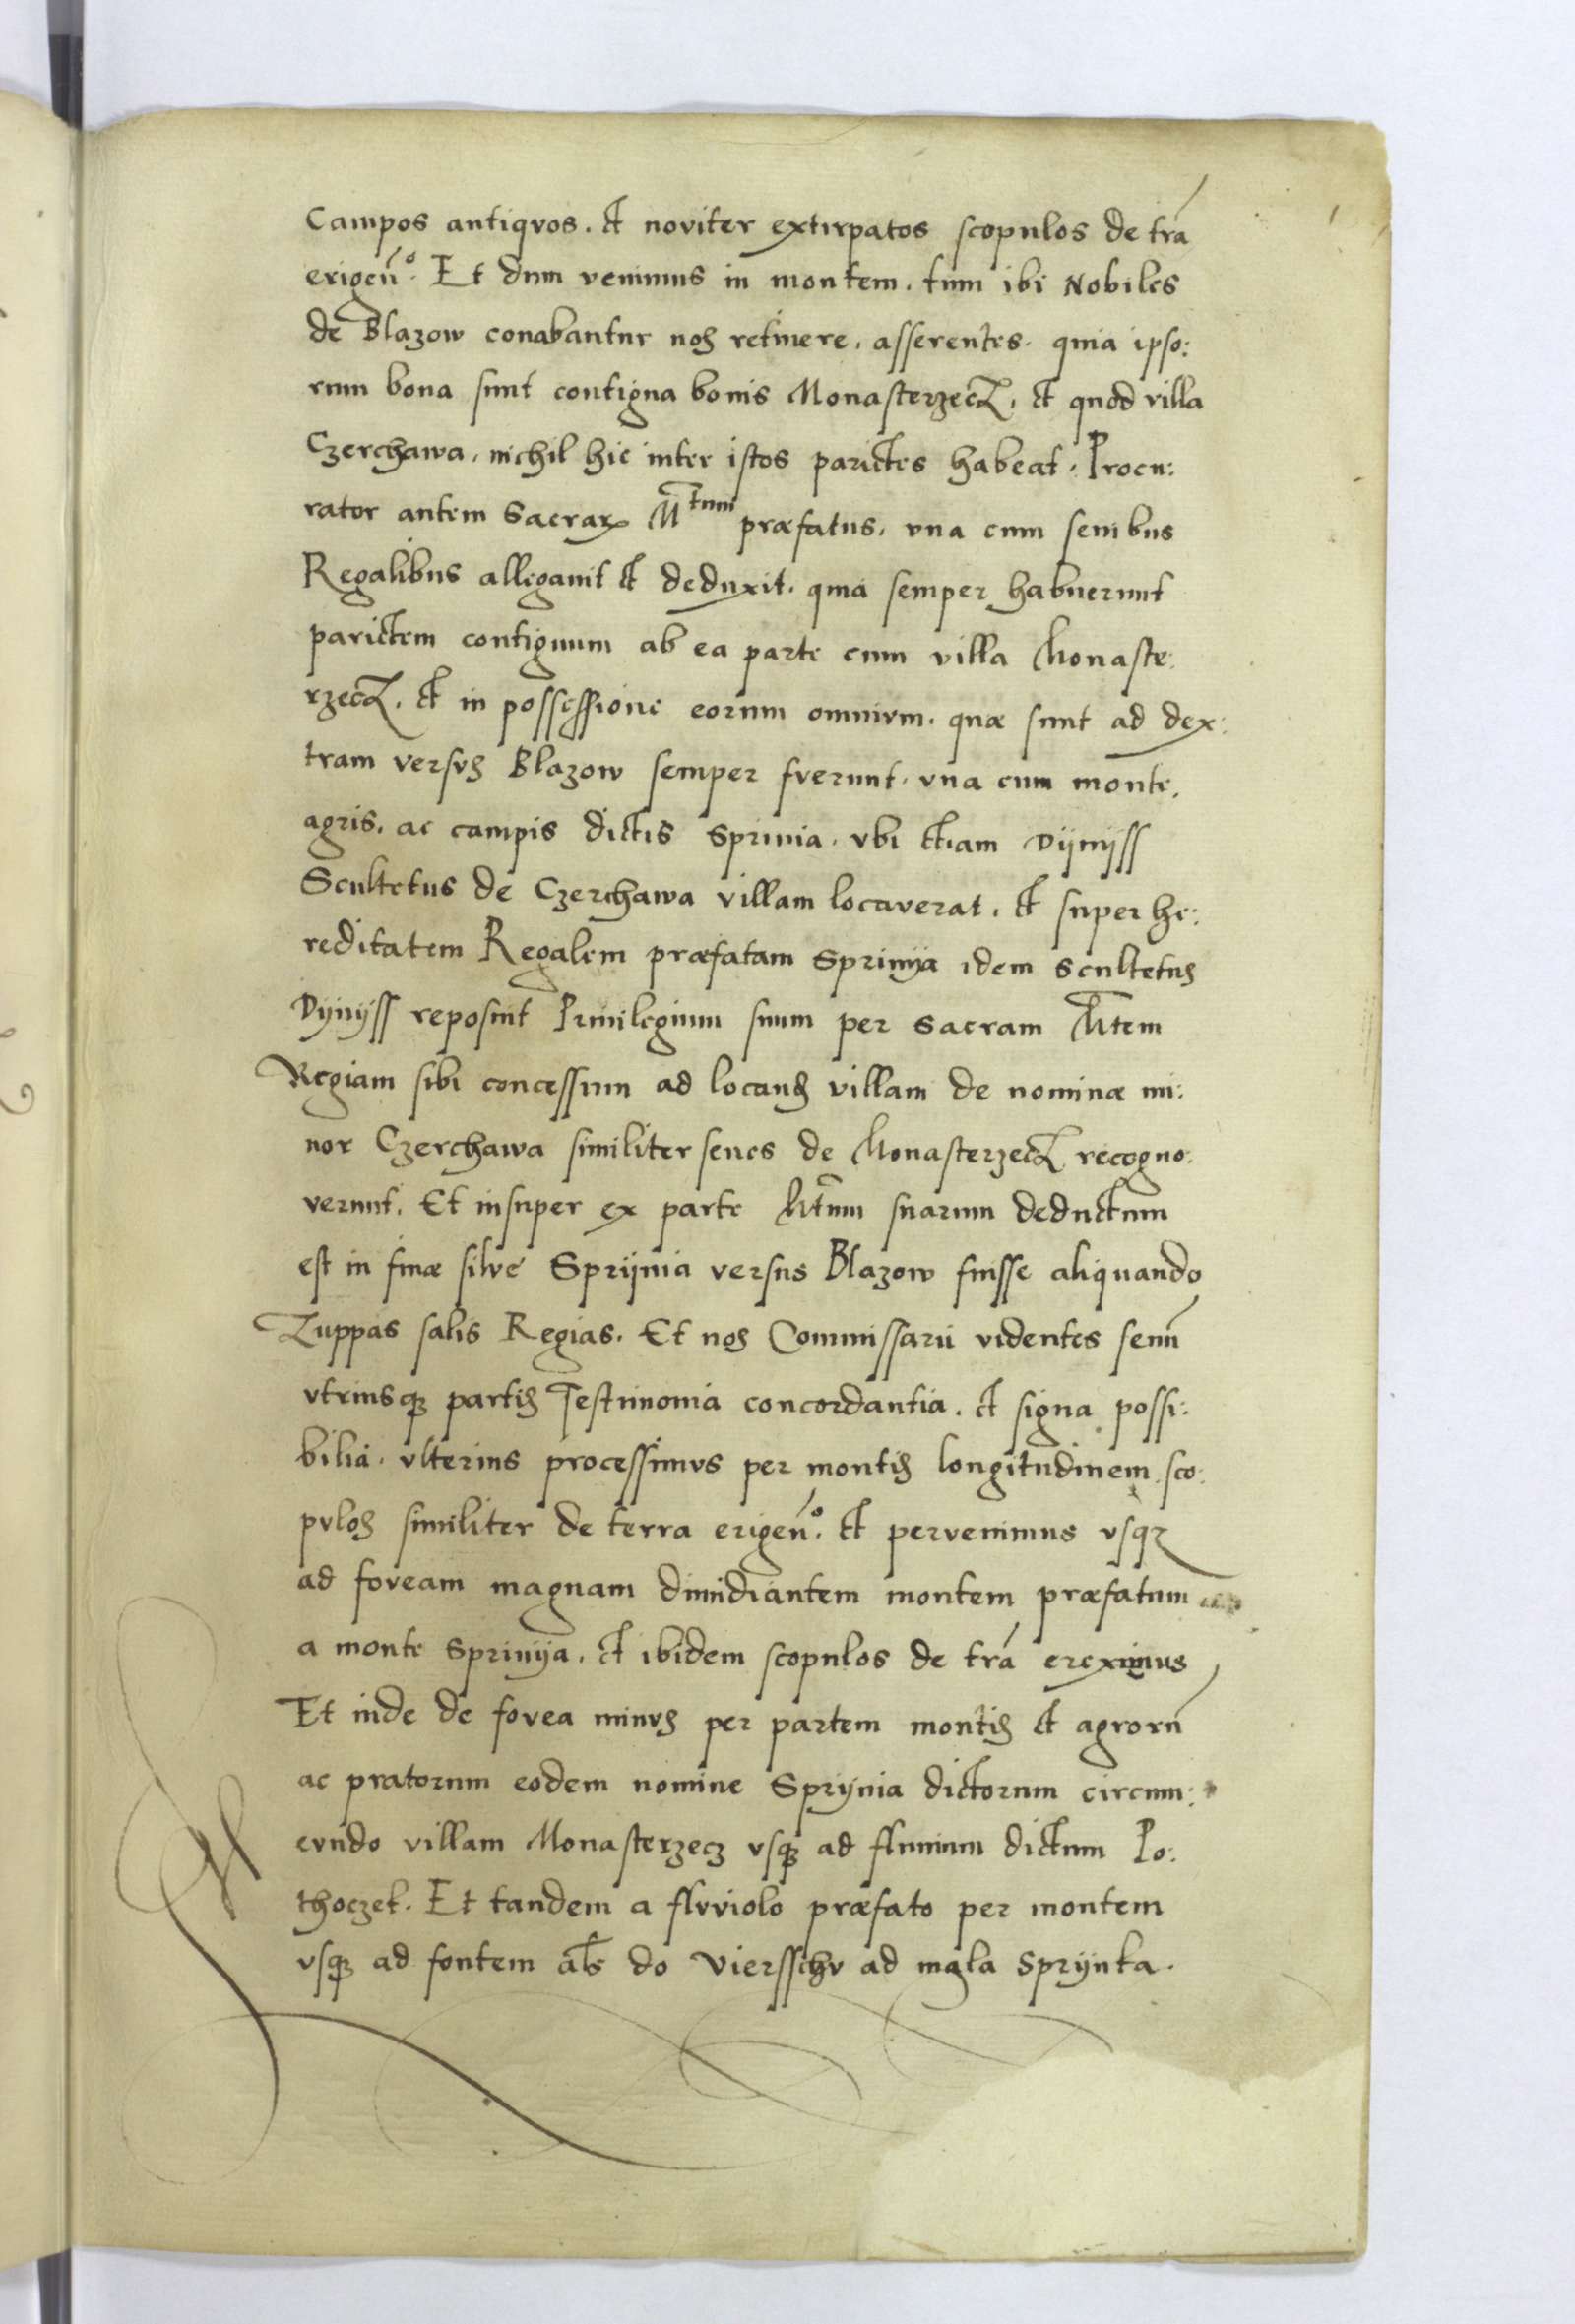 Campos antiqvos. et noviter extirpatos scopulos de trã
erigeñ°. Et dum venimus in montem. tum ibi Nobiles
de Blazow conabantur nos retinere, asserentes. quia ipso:
rum bona sunt contigua bonis Monasterzecz, et quod villa
Czerchawa, nichil hic inter istos parietes habeat. Procu:
rator autem Sacrarꝝ Mtum præfatus, vna cum senibus
Regalibus allegauit et deduxit. quia semper habuerunt
parietem contiguum ab ea parte cum villa Monaste:
rzecz, et in possessione eorum omnivm. quæ sunt ad dex:
tram versvs Blazow semper fverunt. vna cum monte,
agris, ac campis dictis Sprinia. vbi etiam Dijnijss
Scultetus de Czerchawa villam locaverat, et super he:
reditatem Regalem præfatam Sprinija idem Scultetus
Dijnijss reposuit Priuilegium suum per Sacram Mtem
Regiam sibi concessum ad locand villam de nominæ mi:
nor Czerchawa similiter senes de Monasterzecz recogno:
verunt. Et insuper ex parte Mtum suarum deductum
est in finæ silve Sprijnia versus Blazow fuisse aliquando
Zuppas salis Regias. Et nos Commissarii videntes senũ
vtriusqꝫ partis Testimonia concordantia. et signa possi:
bilia. vlterius processimvs per montis longitudinem sco:
pvlos similiter de terra erigeñ°. et pervenimus vsqꝫ
ad foveam magnam dimidiantem montem præfatum
a monte Sprinija. et ibidem scopulos de trã ereximus
Et inde de fovea minvs per partem montis et agrorũ
ac pratorum eodem nomine Sprijnia dictorum circum:
evndo villam Monasterzecz vsqꝫ ad fluuium dictum Po:
thoczek. Et tandem a flvviolo præfato per montem
vsqꝫ ad fontem als do Viersschv ad mala Sprijnka.